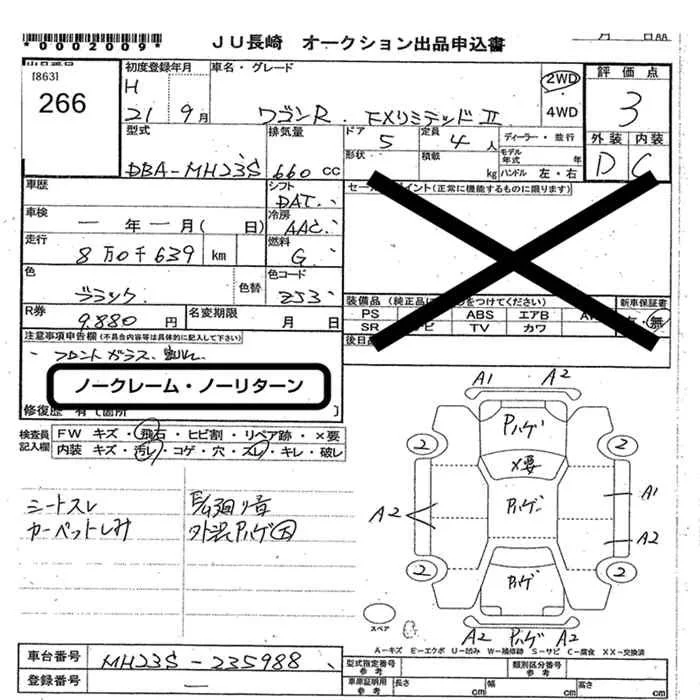 *0002009*
JU長崎 オークション出品申込書
月 日
[863]
266
初度登録年月
H
21 9月
車名・グレード
ワゴンR FXリミテッドⅡ
2WD
・
4WD
評価点
3
外装 内装
D C
型式
DBA-MH23S
排気量
660 CC
ドア
5
定員
4人
ディーラー・並行
形状
積載
kg
モデル
年式 年
ハンドル 左・右
車歴
シフト
DAT
セー ポイント(正常に機能するものに限ります)
車検
一年一月( 日)
冷房
AAC
走行
8万0千639 km
燃料
G
色
ブラック
色替
色コード
ZJ3
装備品(純正品に をつけてください)
PS ABS エアB
SR TV カワ
新車保証書
・無
R券
9,880円
名変期限
月 日
後日
注意事項申告欄(不具合内容等は具体的に記入して下さい)
フロントガラス
ノークレーム・ノーリターン
修復歴 有[箇所 ]
検査員
記入欄
FW キズ・飛石・ヒビ割・リペア跡・×要
内装 キズ・汚レ・コゲ・穴・スレ・キレ・破レ
シートスレ
カーペットしみ
外装Pハゲ大
A1 A2
Pハゲ
2 2
×要
A2 Pハゲ A1
A2
2 2
Pハゲ
スペア
A2 Pハゲ A2
A-キズ E-エクボ U-凹み W-補修跡 S-サビ C-腐食 XX-交換済
車台番号
MH23S-235988
登録番号
一
型式指定番号
参考
類別区分番号
参考
車庫証明用
参考
長さ
cm
幅
cm
高さ
cm